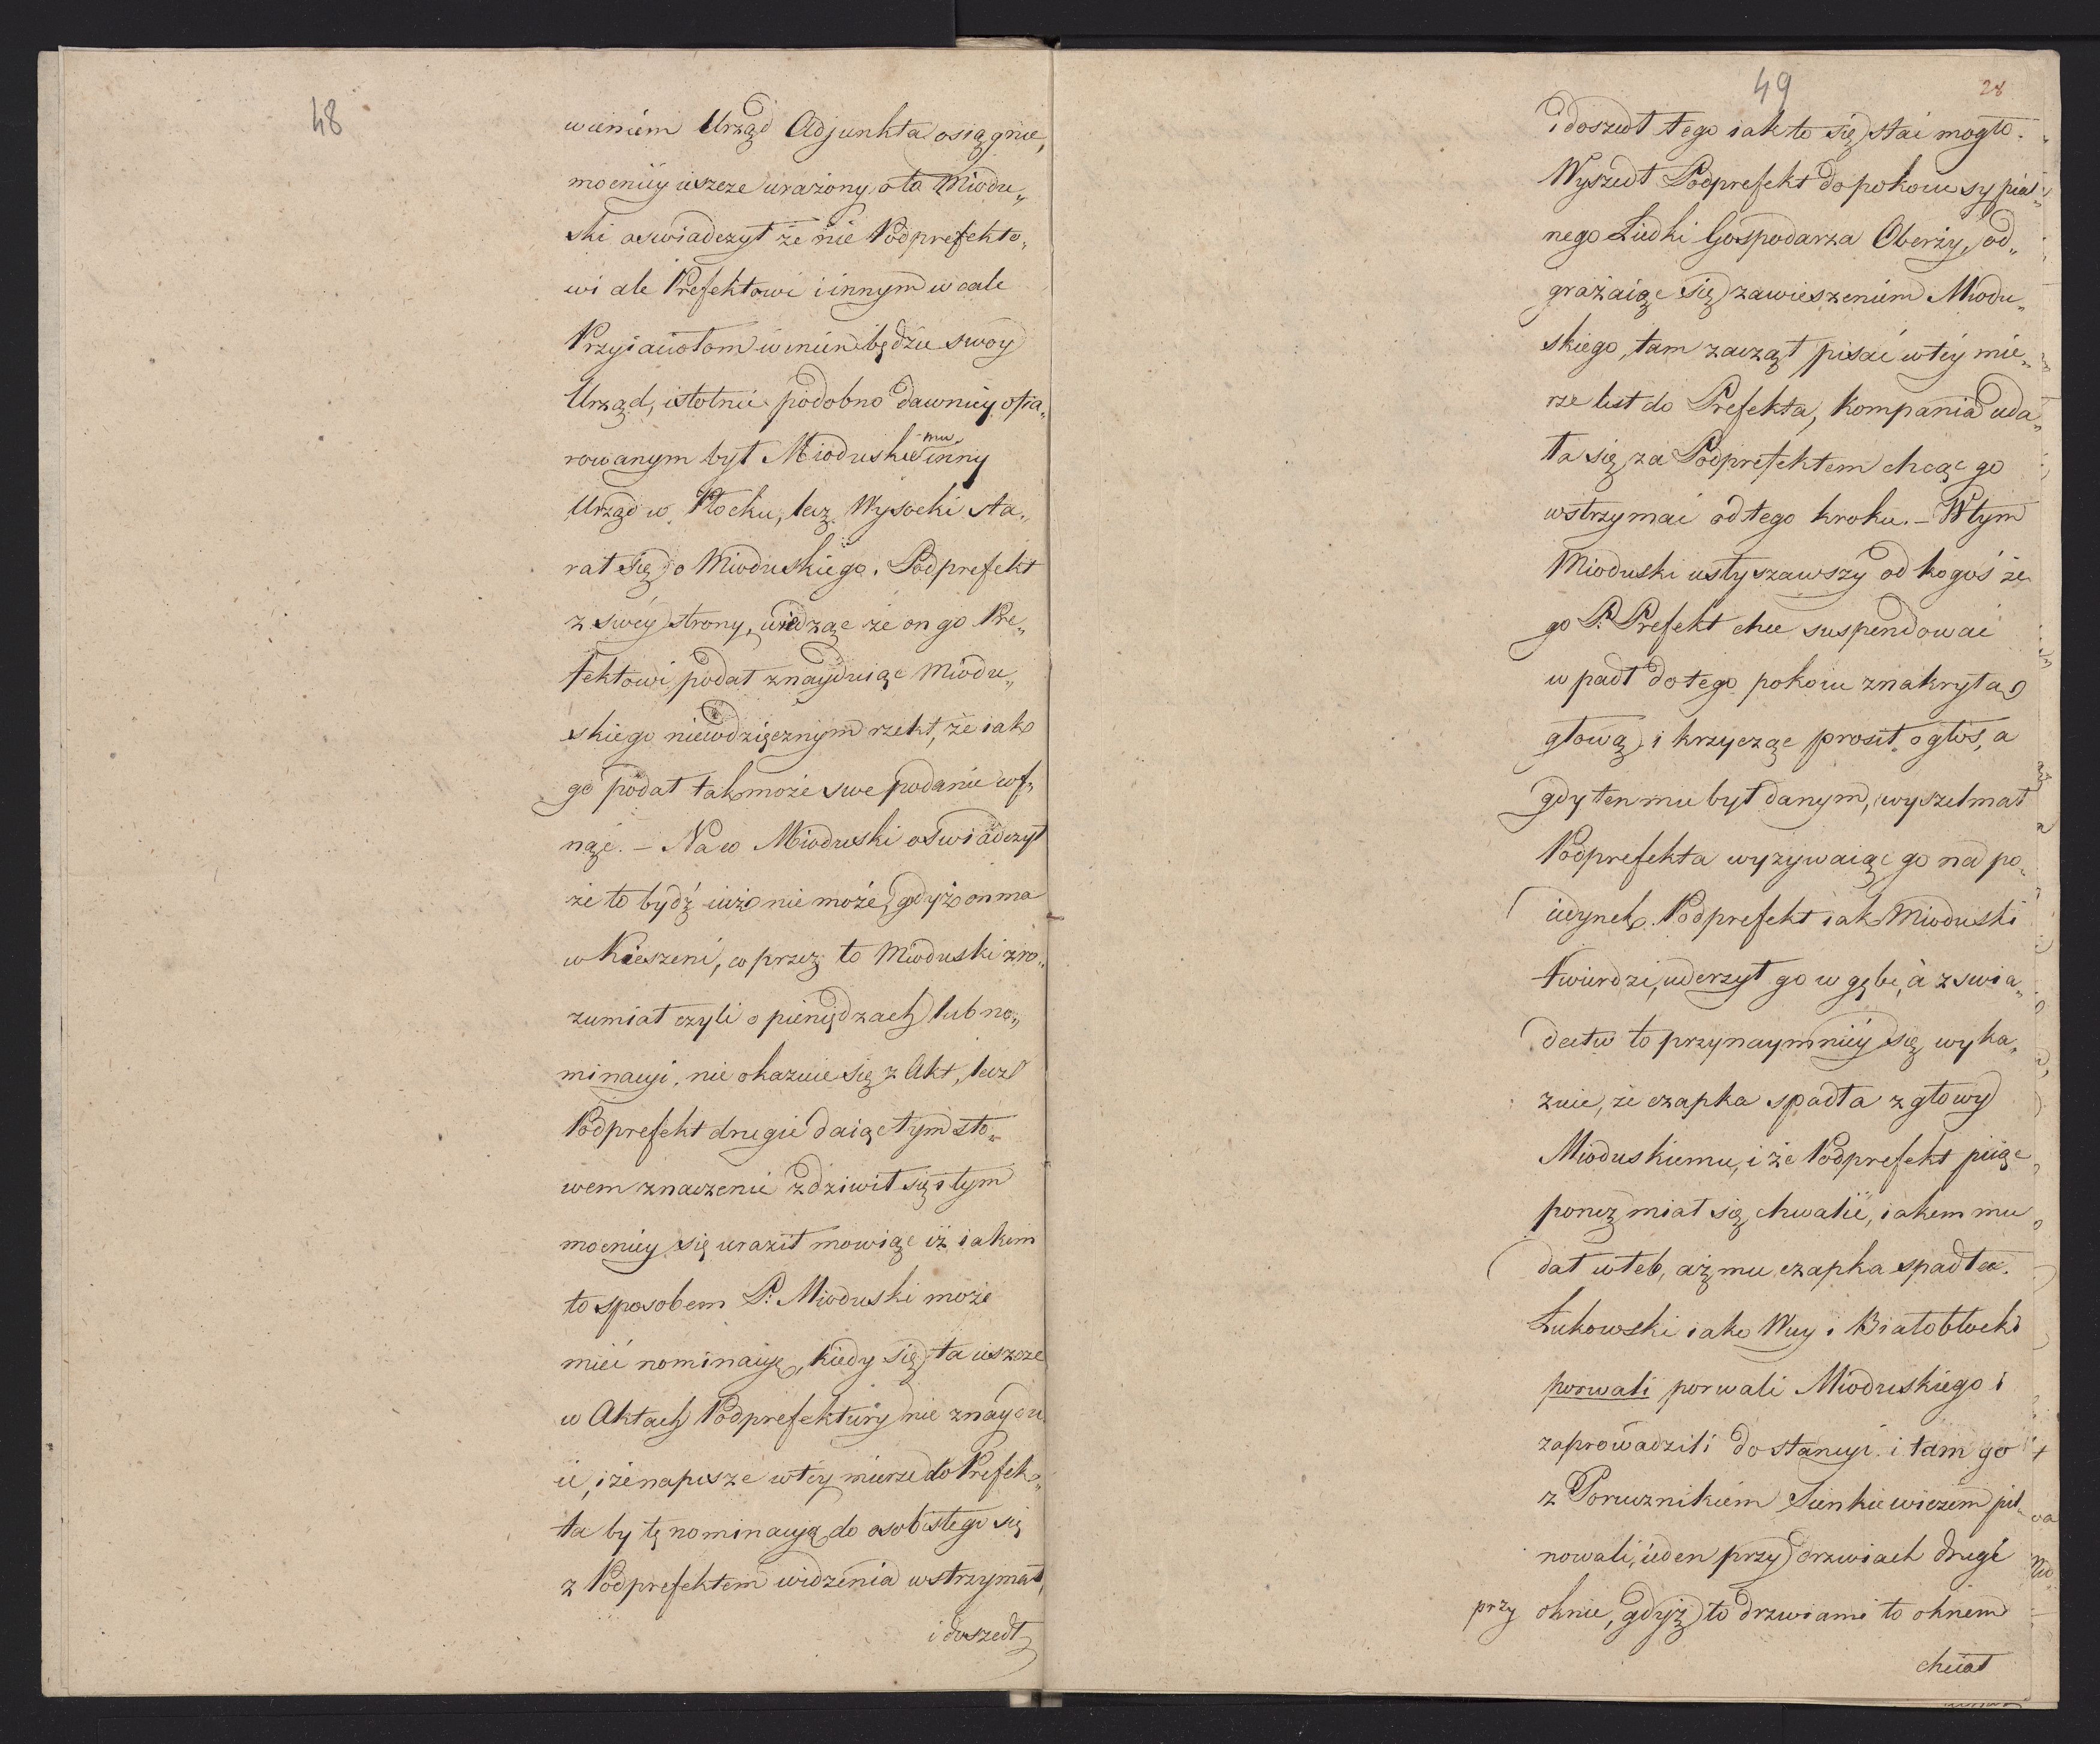 48
wieniem Urząd Adjunkta osiągnie,
mocniey ieszcze urażony o to Miodu„
ski oswiadczył że nie Podprefekto„
wi ale Prefektowi i innym wcale
Przyiaciołom winien będzie swóy
Urząd, istotnie podobno dawniey ofia„
rowanym był Mioduskiemu inny
Urząd w Płocku, lecz Wysocki sta„
rał się o Mioduskiego. Podprefekt
z swéy strony, widząc że on go Pre„
fektowi podał znayduiąc Miodu„
skiego niewdzięcznym rzekł, że iak
go podał tak może swe podanie cof„
nąć. – Na co Mioduski oswiadczył
że to bydź iuż nie może, gdyż on ma
w Kieszeni, co przez to Mioduski zro„
zumiał czyli o pieniądzach lub no„
minacyi, nie okazuie się z Akt, lecz
Podprefekt drugie daiąc tym sło„
wem znaczenie zdziwił się i tym
mocniey się uraził mowiąc iż iakim
to sposobem P. Mioduski może
mieć nominacyę, kiedy się ta ieszcze
w Aktach Podprefektury nie znaydu
ie, i że napisze w téy mierze do Prefek„
ta by tę nominacyą do osobistego się
z Podprefektem widzenia wstrzymał,
i doszedł
49
28
i doszedł tego iak to się stać mogło.
Wyszedł Podprefekt do pokoiu sypial„
nego Liedki Gospodarza Oberży, od„
grażaiąc się zawieszeniem Miodu„
skiego, tam zaczął pisać w téy mie„
rze list do Prefekta, Kompania uda„
ła się za Podprefektem chcąc go
wstrzymać od tego kroku. – W tym
Mioduski usłyszawszy od kogoś że
go P. Prefekt chce suspendować
wpadł do tego pokoiu z nakrytą
głową i krzycząc prosił o głos, a
gdy ten mu był danym, wyszelmał
Podprefekta wyzywaiąc go na po„
iedynek. Podprefekt iak Mioduski
twierdzi, uderzył go w gębę, a z swia„
dectw to przynaymniéy się wyka„
zuie, że czapka spadła z głowy
Mioduskiemu, i że Podprefekt piiąc
poncz miał się chwalić, iakem mu
dał w łeb, aż mu czapka spadła.
Łukowski iako Wuy i Białobłocki
porwali porwali Mioduskiego i
zaprowadzili do stancyi i tam go
z Porucznikiem Sienkiewiczem pil„
nowali, ieden przy drzwiach drugi
przy oknie, gdyż to drzwiami to oknem
chciał